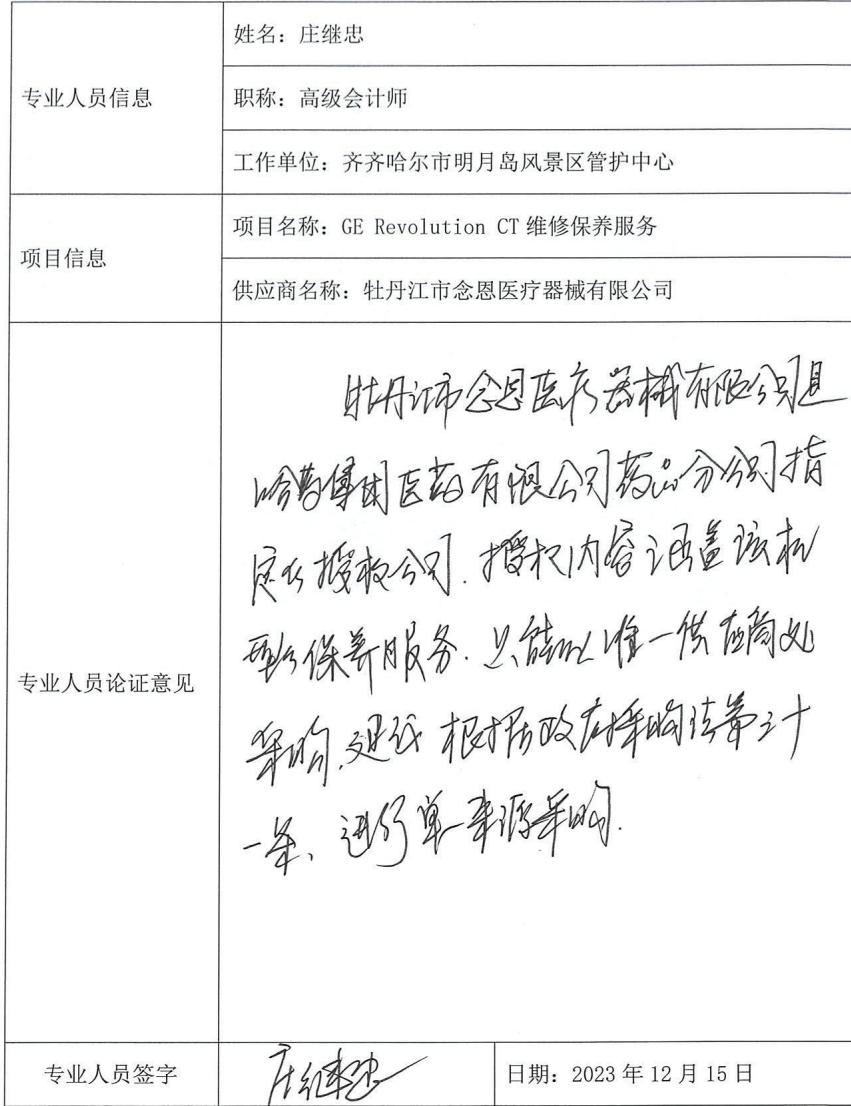 专业人员信息
姓名：庄继忠
职称：高级会计师
工作单位：齐齐哈尔市明月岛风景区管护中心
项目信息
项目名称：GE Revolution CT 维修保养服务
供应商名称：牡丹江市念恩医疗器械有限公司
专业人员论证意见
牡丹江市念恩医疗器械有限公司是
哈药集团医药有限公司药品分公司指
定的授权公司.授权内容涵盖该机
型的保养服务.只能从唯一供应商处
采购,建议根据政府采购法第三十
一条、进行单一来源采购.
专业人员签字
庄继忠
日期：2023 年 12 月 15 日